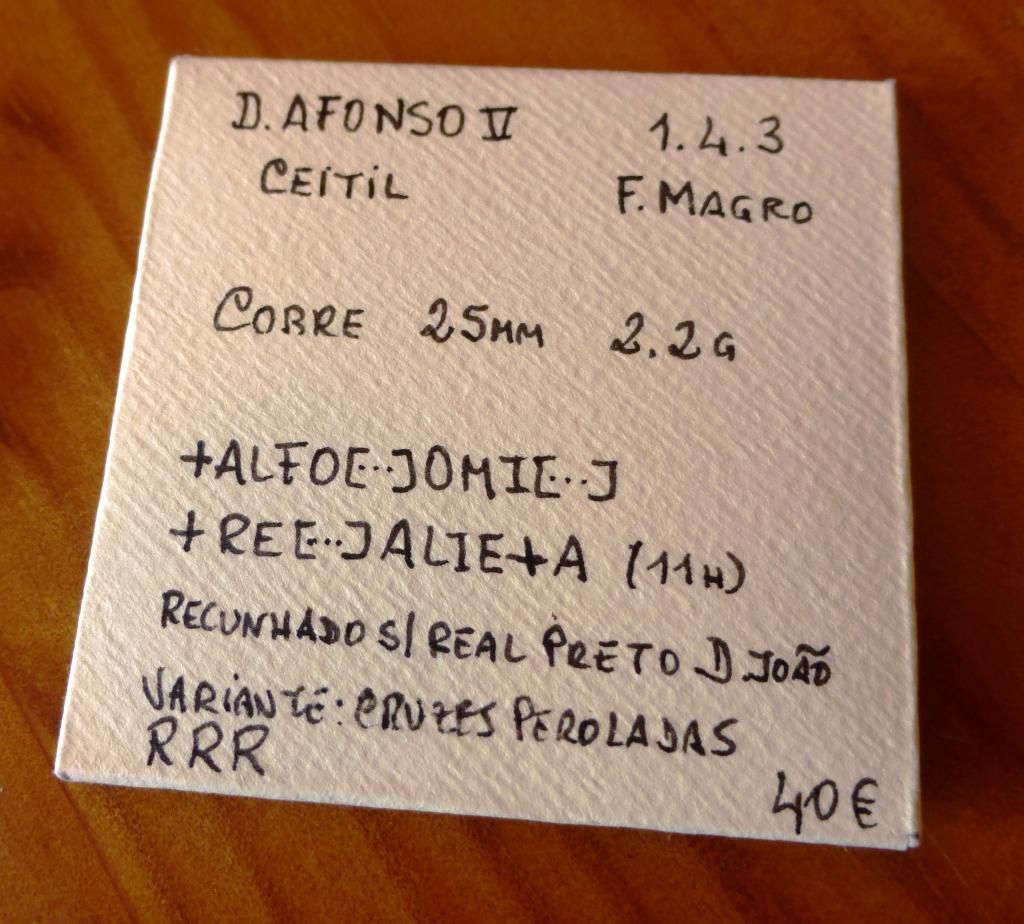 D. AFONSO V 1.4.3
CEITIL F. MAGRO
COBRE 25MM 2.2G
+ALFO[...]OMI[...]
+RE[...]ALIE+A (11H)
RECUNHADO S/ REAL PRETO D JOÃO
VARIANTE: CRUZES PEROLADAS
RRR
40€